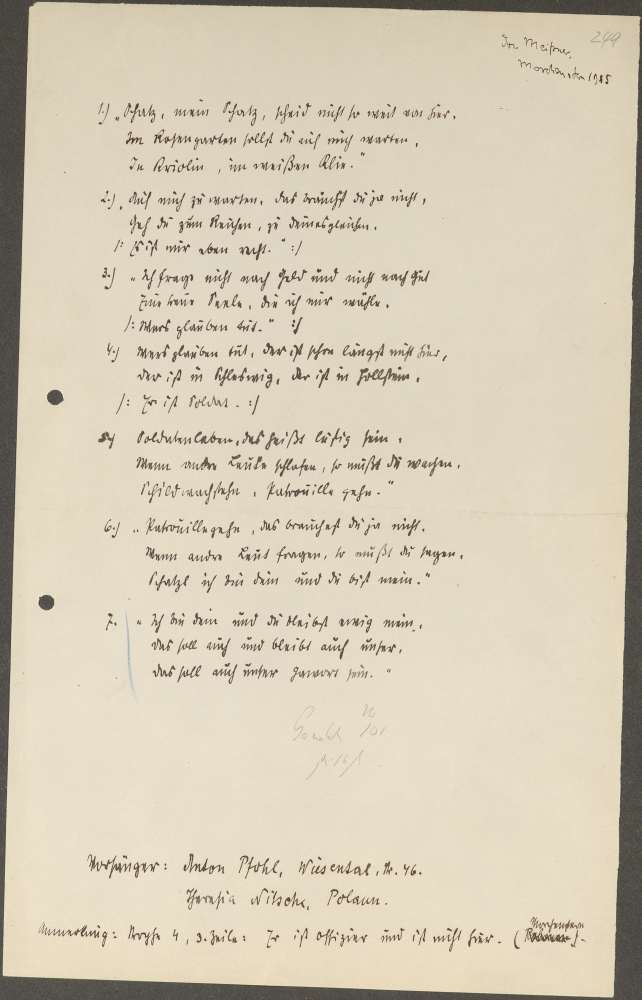 249
Joh. Meißner,
Morchenstern 1905
1.) „Schatz, mein Schatz, scheid nicht so weit von hier.
Im Rosengarten sollst du auf mich warten,
In Kriolin, im weißen Klie."
2.) „Auf mich zu warten, das brauchst du ja nicht,
Geh du zum Reichen, zu deinesgleichen.
/: Es ist mir eben recht." :/
3.) „Ich frage nicht nach Geld und nicht nach Gut
Eine treue Seele, die ich mir wähle,
/: Wers glauben tut." :/
4.) Wers glauben tut, der ist schon längst nicht hier,
der ist in Schleswig, der ist in Hollstein,
/: Er ist Soldat. :/
5.) Soldatenleben, das heißt lustig sein.
Wenn andre Leute schlafen, so mußt du wachen,
Schildwachstehn, Patrouille gehn."
6.) „Patrouillegehn, das brauchest du ja nicht.
Wenn andre Leut fragen, so mußt du sagen,
Schatzl ich bin dein und du bist mein."
7. „Ich bin dein und du bleibst ewig mein,
das soll auch und bleibt auch unser,
das soll auch unser sein."
Vorsänger: Anton Pfohl, Wiesental, Nr. 46.
Theresia Nitsche, Polaun.
Anmerkung: Strophe 4, 3. Zeile: Er ist Offizier und ist nicht hier. (Morchenstern).